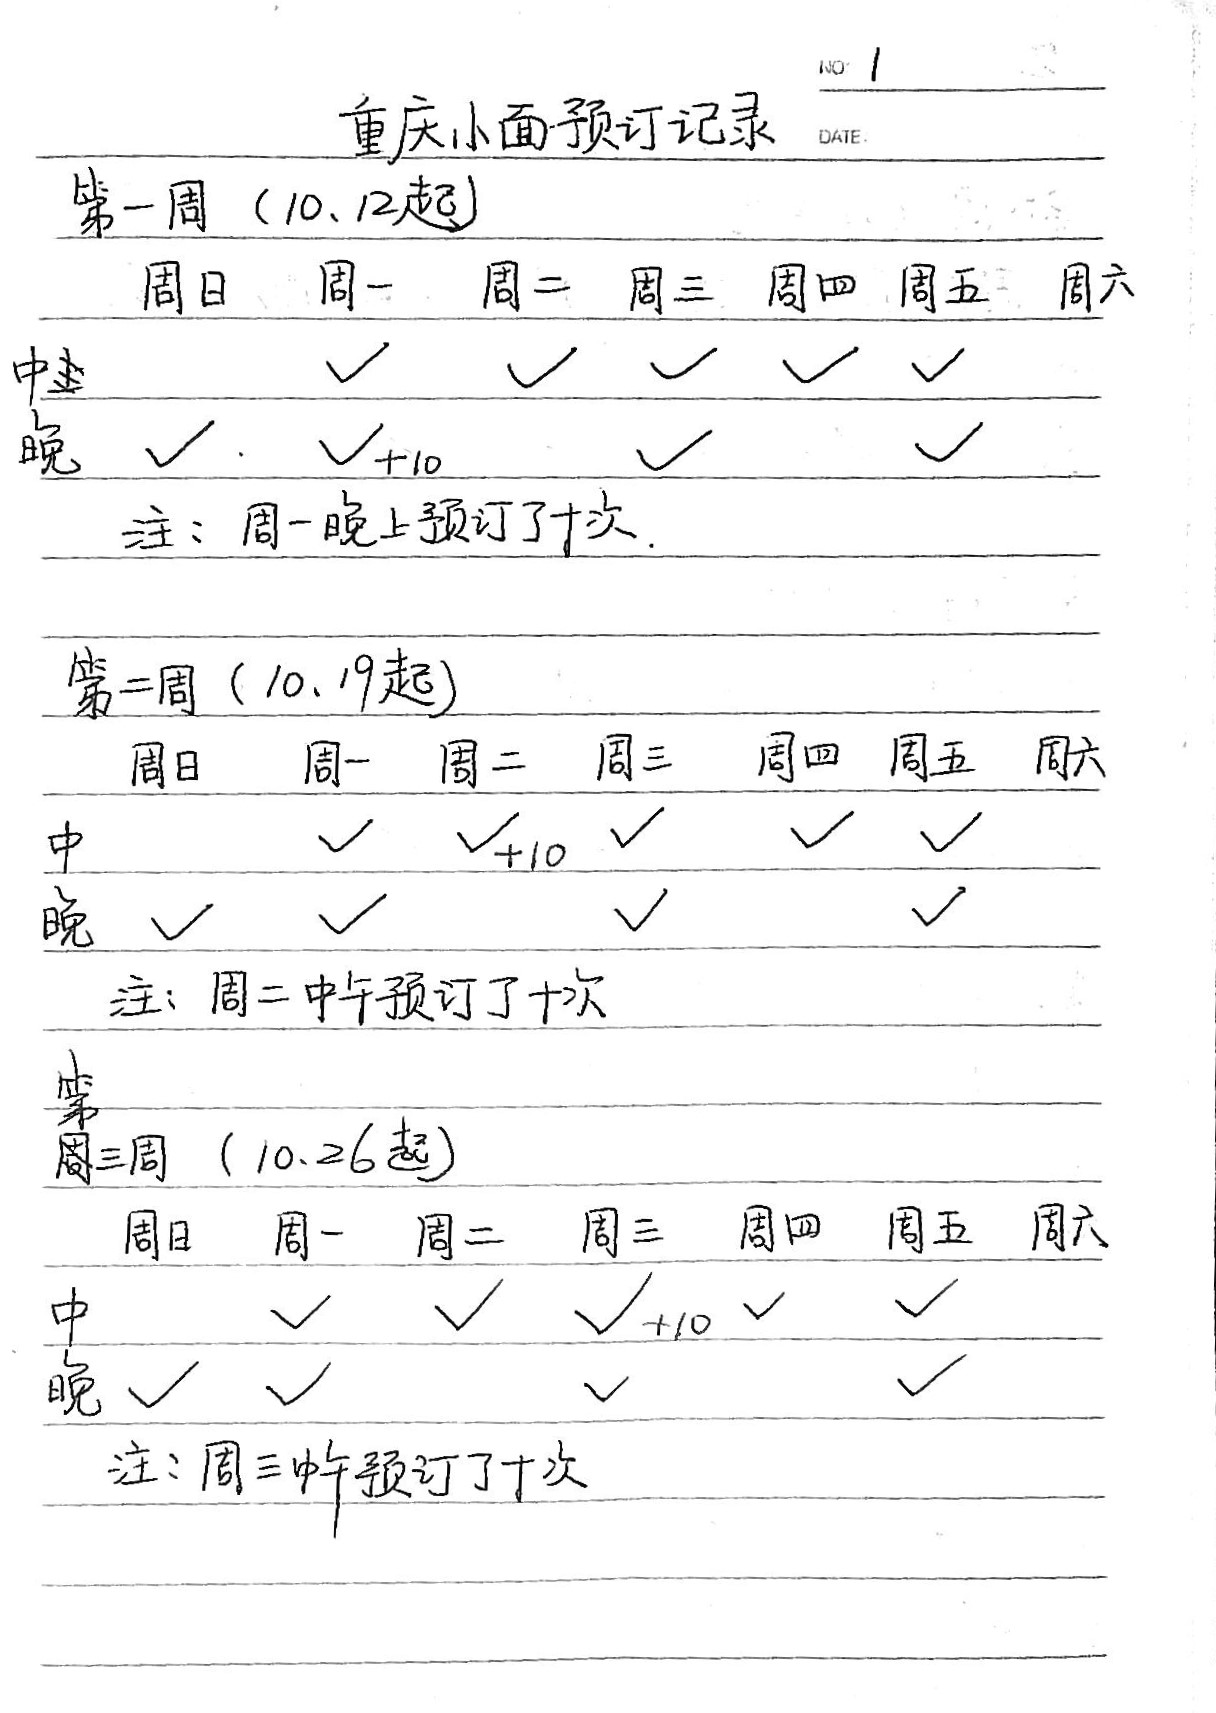 NO. 1
重庆小面预订记录
DATE.
第一周（10、12起）
周日 周一 周二 周三 周四 周五 周六
中 ✓ ✓ ✓ ✓ ✓
晚 ✓ ✓+10 ✓ ✓
注：周一晚上预订了十次.
第二周（10、19起）
周日 周一 周二 周三 周四 周五 周六
中 ✓ ✓+10 ✓ ✓ ✓
晚 ✓ ✓ ✓ ✓
注：周二中午预订了十次
第
三周（10、26起）
周日 周一 周二 周三 周四 周五 周六
中 ✓ ✓ ✓+10 ✓ ✓
晚 ✓ ✓ ✓ ✓
注：周三中午预订了十次